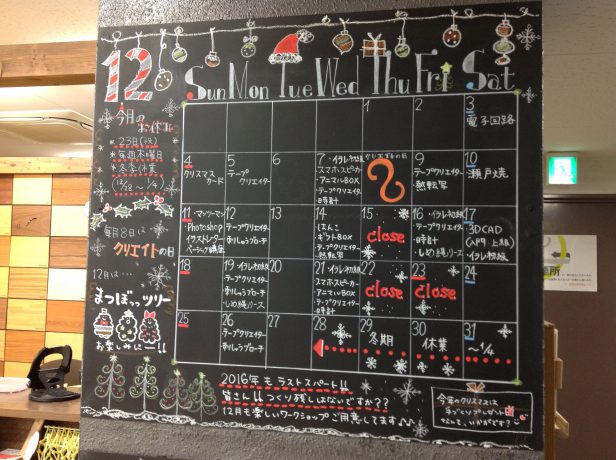 12
Sun Mon Tue Wed Thu Fri Sat
今月の
お休み
23日(祝)
*毎週木曜日
*冬季休業
(12/28〜1/4)
毎月8日は
クリエイトの日
12月は…
まつぼっツリー
お楽しみに〜!!
1
2
3
電子回路
4
クリスマス
カード
5
テープ
クリエイター
6
7 ・イラレ初級
・スマホスピーカー
・アニマルBOX
・テープクリエイター
・日時計
クリエイトの日
9
・テープクリエイター
・熱転写
10
瀬戸焼
11
・Photoshop
イラストレーター
12
・テープクリエイター
・刺しゅうブローチ
13
14
・はんこ
・テープクリエイター
・熱転写
15
close
16 ・イラレ初級
・テープクリエイター
・日時計
・しめ縄リース
17
3DCAD
(入門 上級)
・イラレ初級
18
19 ・イラレ初級
・テープクリエイター
・刺しゅうブローチ
・しめ縄リース
20
21 ・イラレ初級
・スマホスピーカー
・アニマルBOX
・テープクリエイター
・日時計
22
close
23
close
24
25
26
・テープクリエイター
・刺しゅうブローチ
27
28
29
冬期
30
休業
31
〜1/4
2016年も ラストスパート!!
皆さん!!つくり残しはないですか??
12月も楽しいワークショップ ご用意してます♪♪
今年のクリスマスは
手づくりプレゼント
なんて、いかがです?